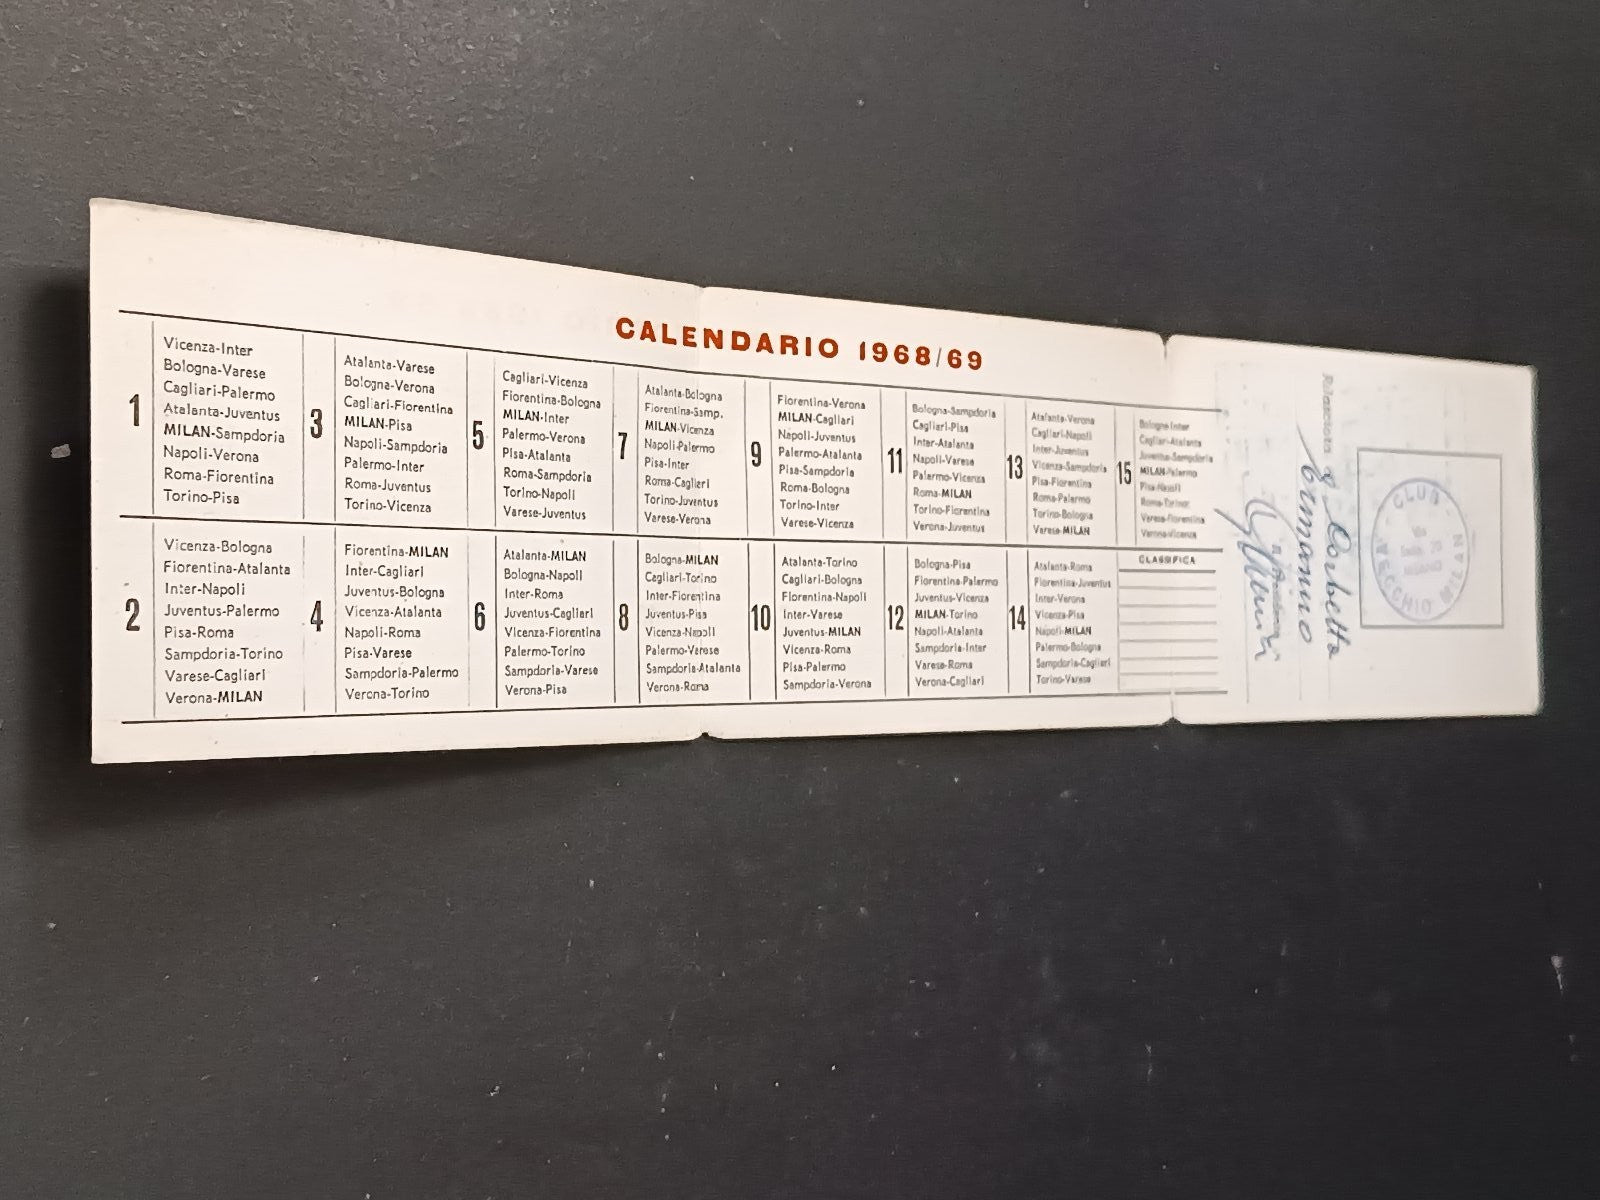 CALENDARIO 1968/69
1
Vicenza-Inter
Bologna-Varese
Cagliari-Palermo
Atalanta-Juventus
MILAN-Sampdoria
Napoli-Verona
Roma-Fiorentina
Torino-Pisa
2
Vicenza-Bologna
Fiorentina-Atalanta
Inter-Napoli
Juventus-Palermo
Pisa-Roma
Sampdoria-Torino
Varese-Cagliari
Verona-MILAN
3
Atalanta-Varese
Bologna-Verona
Cagliari-Fiorentina
MILAN-Pisa
Napoli-Sampdoria
Palermo-Inter
Roma-Juventus
Torino-Vicenza
4
Fiorentina-MILAN
Inter-Cagliari
Juventus-Bologna
Vicenza-Atalanta
Napoli-Roma
Pisa-Varese
Sampdoria-Palermo
Verona-Torino
5
Cagliari-Vicenza
Fiorentina-Bologna
MILAN-Inter
Palermo-Verona
Pisa-Atalanta
Roma-Sampdoria
Torino-Napoli
Varese-Juventus
6
Atalanta-MILAN
Bologna-Napoli
Inter-Roma
Juventus-Cagliari
Vicenza-Fiorentina
Palermo-Torino
Sampdoria-Varese
Verona-Pisa
7
Atalanta-Bologna
Fiorentina-Samp.
MILAN-Vicenza
Napoli-Palermo
Pisa-Inter
Roma-Cagliari
Torino-Juventus
Varese-Verona
8
Bologna-MILAN
Cagliari-Torino
Inter-Fiorentina
Juventus-Pisa
Vicenza-Napoli
Palermo-Varese
Sampdoria-Atalanta
Verona-Roma
9
Fiorentina-Verona
MILAN-Cagliari
Napoli-Juventus
Palermo-Atalanta
Pisa-Sampdoria
Roma-Bologna
Torino-Inter
Varese-Vicenza
10
Atalanta-Torino
Cagliari-Bologna
Fiorentina-Napoli
Inter-Varese
Juventus-MILAN
Vicenza-Roma
Pisa-Palermo
Sampdoria-Verona
11
Bologna-Sampdoria
Cagliari-Pisa
Inter-Atalanta
Napoli-Varese
Palermo-Vicenza
Roma-MILAN
Torino-Fiorentina
Verona-Juventus
12
Bologna-Pisa
Fiorentina-Palermo
Juventus-Vicenza
MILAN-Torino
Napoli-Atalanta
Sampdoria-Inter
Varese-Roma
Verona-Cagliari
13
Atalanta-Verona
Cagliari-Napoli
Inter-Juventus
Vicenza-Sampdoria
Pisa-Fiorentina
Roma-Palermo
Torino-Bologna
Varese-MILAN
14
Atalanta-Roma
Fiorentina-Juventus
Inter-Verona
Vicenza-Pisa
Napoli-MILAN
Palermo-Bologna
Sampdoria-Cagliari
Torino-Varese
15
Bologna-Inter
Cagliari-Atalanta
Juventus-Sampdoria
MILAN-Palermo
Pisa-Napoli
Roma-Torino
Varese-Fiorentina
Verona-Vicenza
CLASSIFICA
Barbetta
Ermanno
CLUB
VECCHIO MILAN
MILANO